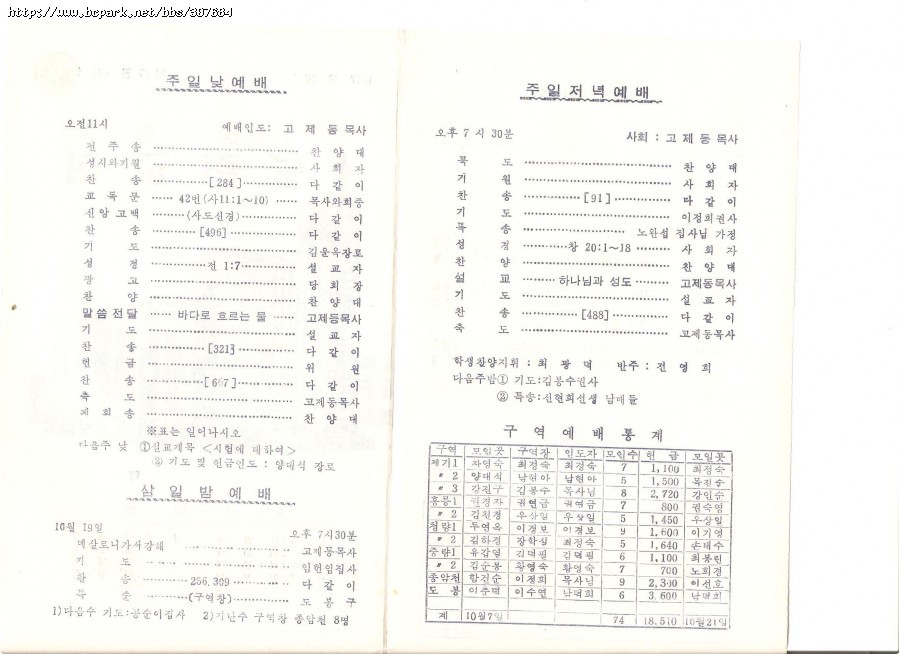 https://www.bcpark.net/bbs/387664
주일낮예배
오전11시 예배인도: 고 제 동 목사
전 주 송 찬 양 대
성시와기원 사 회 자
찬 송 [284] 다 같 이
교 독 문 42번(사11:1~10) 목사와회중
신앙고백 (사도신경) 다 같 이
찬 송 [496] 다 같 이
기 도 김윤옥장로
성 경 전 1:7 설 교 자
광 고 당 회 장
찬 양 찬 양 대
말씀전달 바다로 흐르는 물 고제동목사
기 도 설 교 자
찬 송 [321] 다 같 이
헌 금 위 원
찬 송 [667] 다 같 이
축 도 고제동목사
폐 회 송 찬 양 대
※표는 일어나시오
다음주 낮 ①설교제목 <시험에 대하여>
② 기도 및 헌금인도 : 양대석 장로
삼일밤예배
10월 19일 오후 7시30분
데살로니가서강해 고제동목사
기 도 임헌임집사
찬 송 256,309 다 같 이
특 순 (구역장) 도 봉 구
1)다음수 기도:공순이집사 2)지난수 구역창 종암천 8명
주일저녁예배
오후 7 시 30분 사회 : 고 제 동 목사
묵 도 찬 양 대
기 원 사 회 자
찬 송 [91] 다 같 이
기 도 이정희권사
특 송 노완섭 집사님 가정
성 경 창 20:1~18 사 회 자
찬 양 찬 양 대
설 교 하나님과 성도 고제동목사
기 도 설 교 자
찬 송 [488] 다 같 이
축 도 고제동목사
학생찬양지휘 : 최 광 덕 반주 : 전 영 희
다음주밤① 기도:김봉수권사
② 특송:신현희선생 남매들
구 역 예 배 통 계
구역 모인곳 구역장 인도자 모인수 헌 금 모일곳
제기1 차영숙 최정숙 최정숙 7 1,100 최정숙
〃2 양대석 남현아 남현아 5 1,500 목정순
〃3 강진구 김봉수 목사님 8 2,720 강인순
홍릉1 권경자 권연금 권연금 7 800 권숙영
〃2 김천경 우상일 우상일 5 1,450 우상일
청량1 두연옥 이경보 이경보 9 1,600 이기영
〃2 김하경 장학실 최정숙 5 1,640 손태수
중량1 유갑열 김덕필 김덕필 6 1,100 최봉린
〃2 김순봉 황영숙 황영숙 7 700 노희경
종암천 함건순 이정희 목사님 9 2,300 이선호
도 봉 이춘덕 이수연 남덕희 6 3,600 남덕희
계 10월7일 74 18,510 10월21일